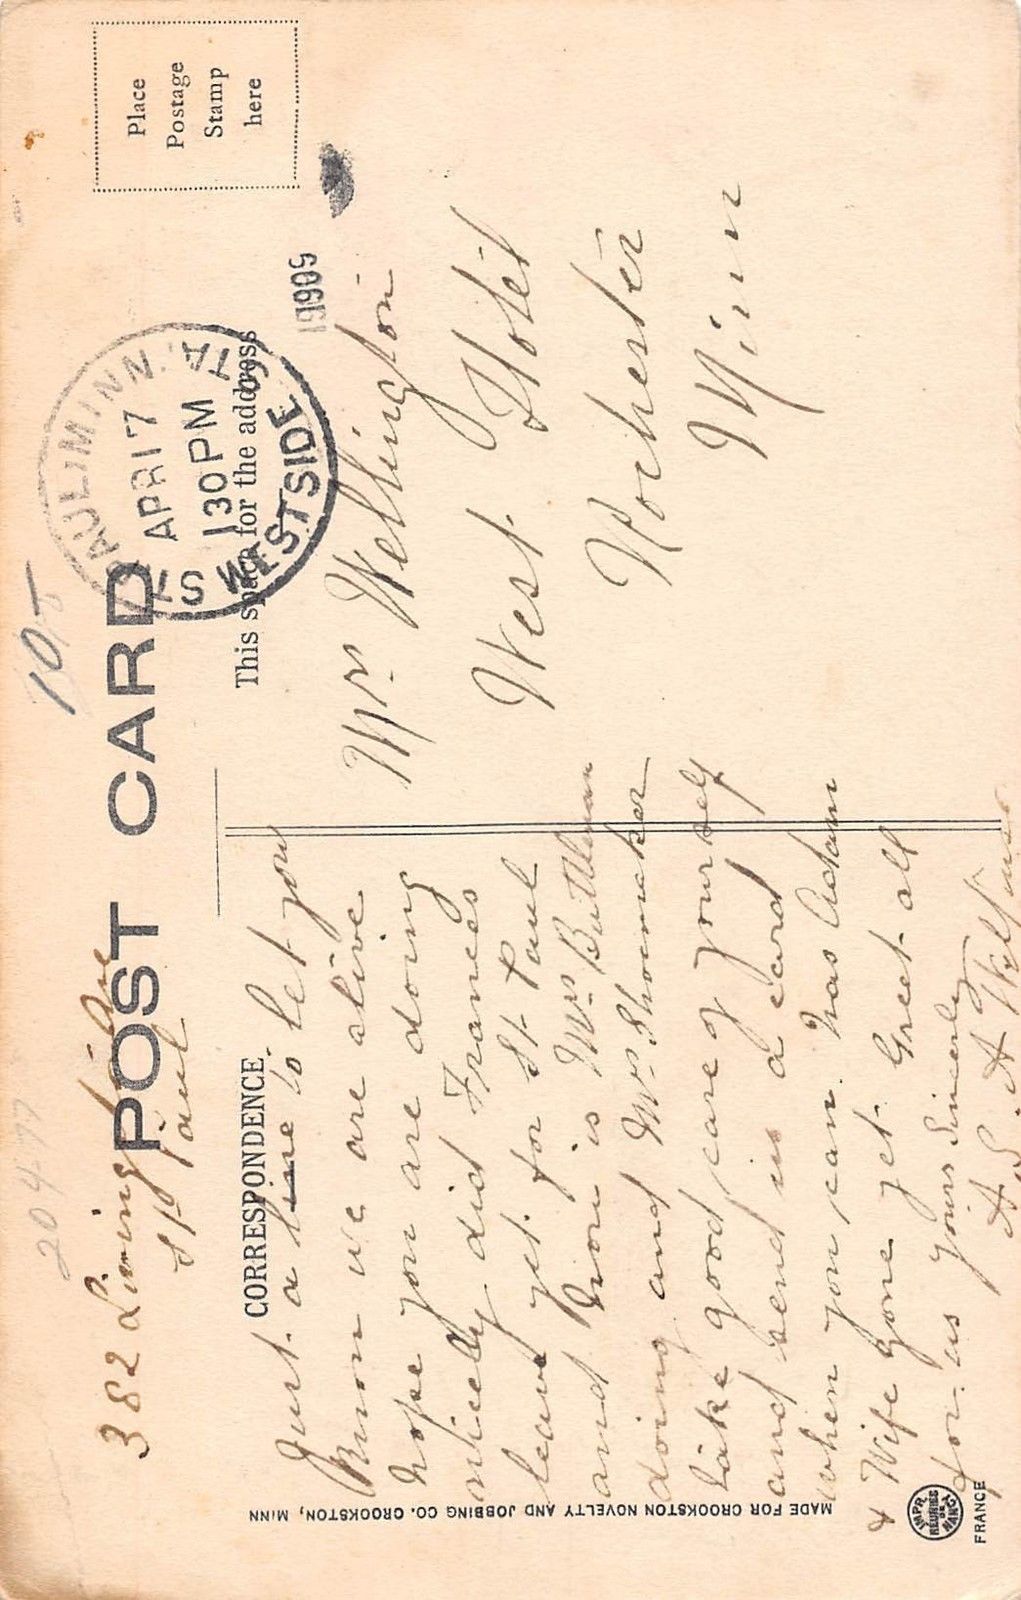 204-77
10 5
382 Livingston Ave
St Paul
POST CARD
Place
Postage
Stamp
here
ST. PAUL, MINN.
APR 17
130PM
WESTSIDE STA.
19909
CORRESPONDENCE.
This space for the address
Just a line to let you
know we are alive
hope you are doing
nicely did Frances
leave yet for St Paul
and how is Mrs
doing and Mrs Shoemaker
take good care of yourself
and send us a card
when you can. has Adam
& Wife gone yet. Greet all
for us yours Sincerely
Mrs Wellington
West Hotel
Rochester
Minn
MADE FOR CROOKSTON NOVELTY AND JOBBING CO. CROOKSTON, MINN
IMPR. RÉUNIES DE NANCY
FRANCE